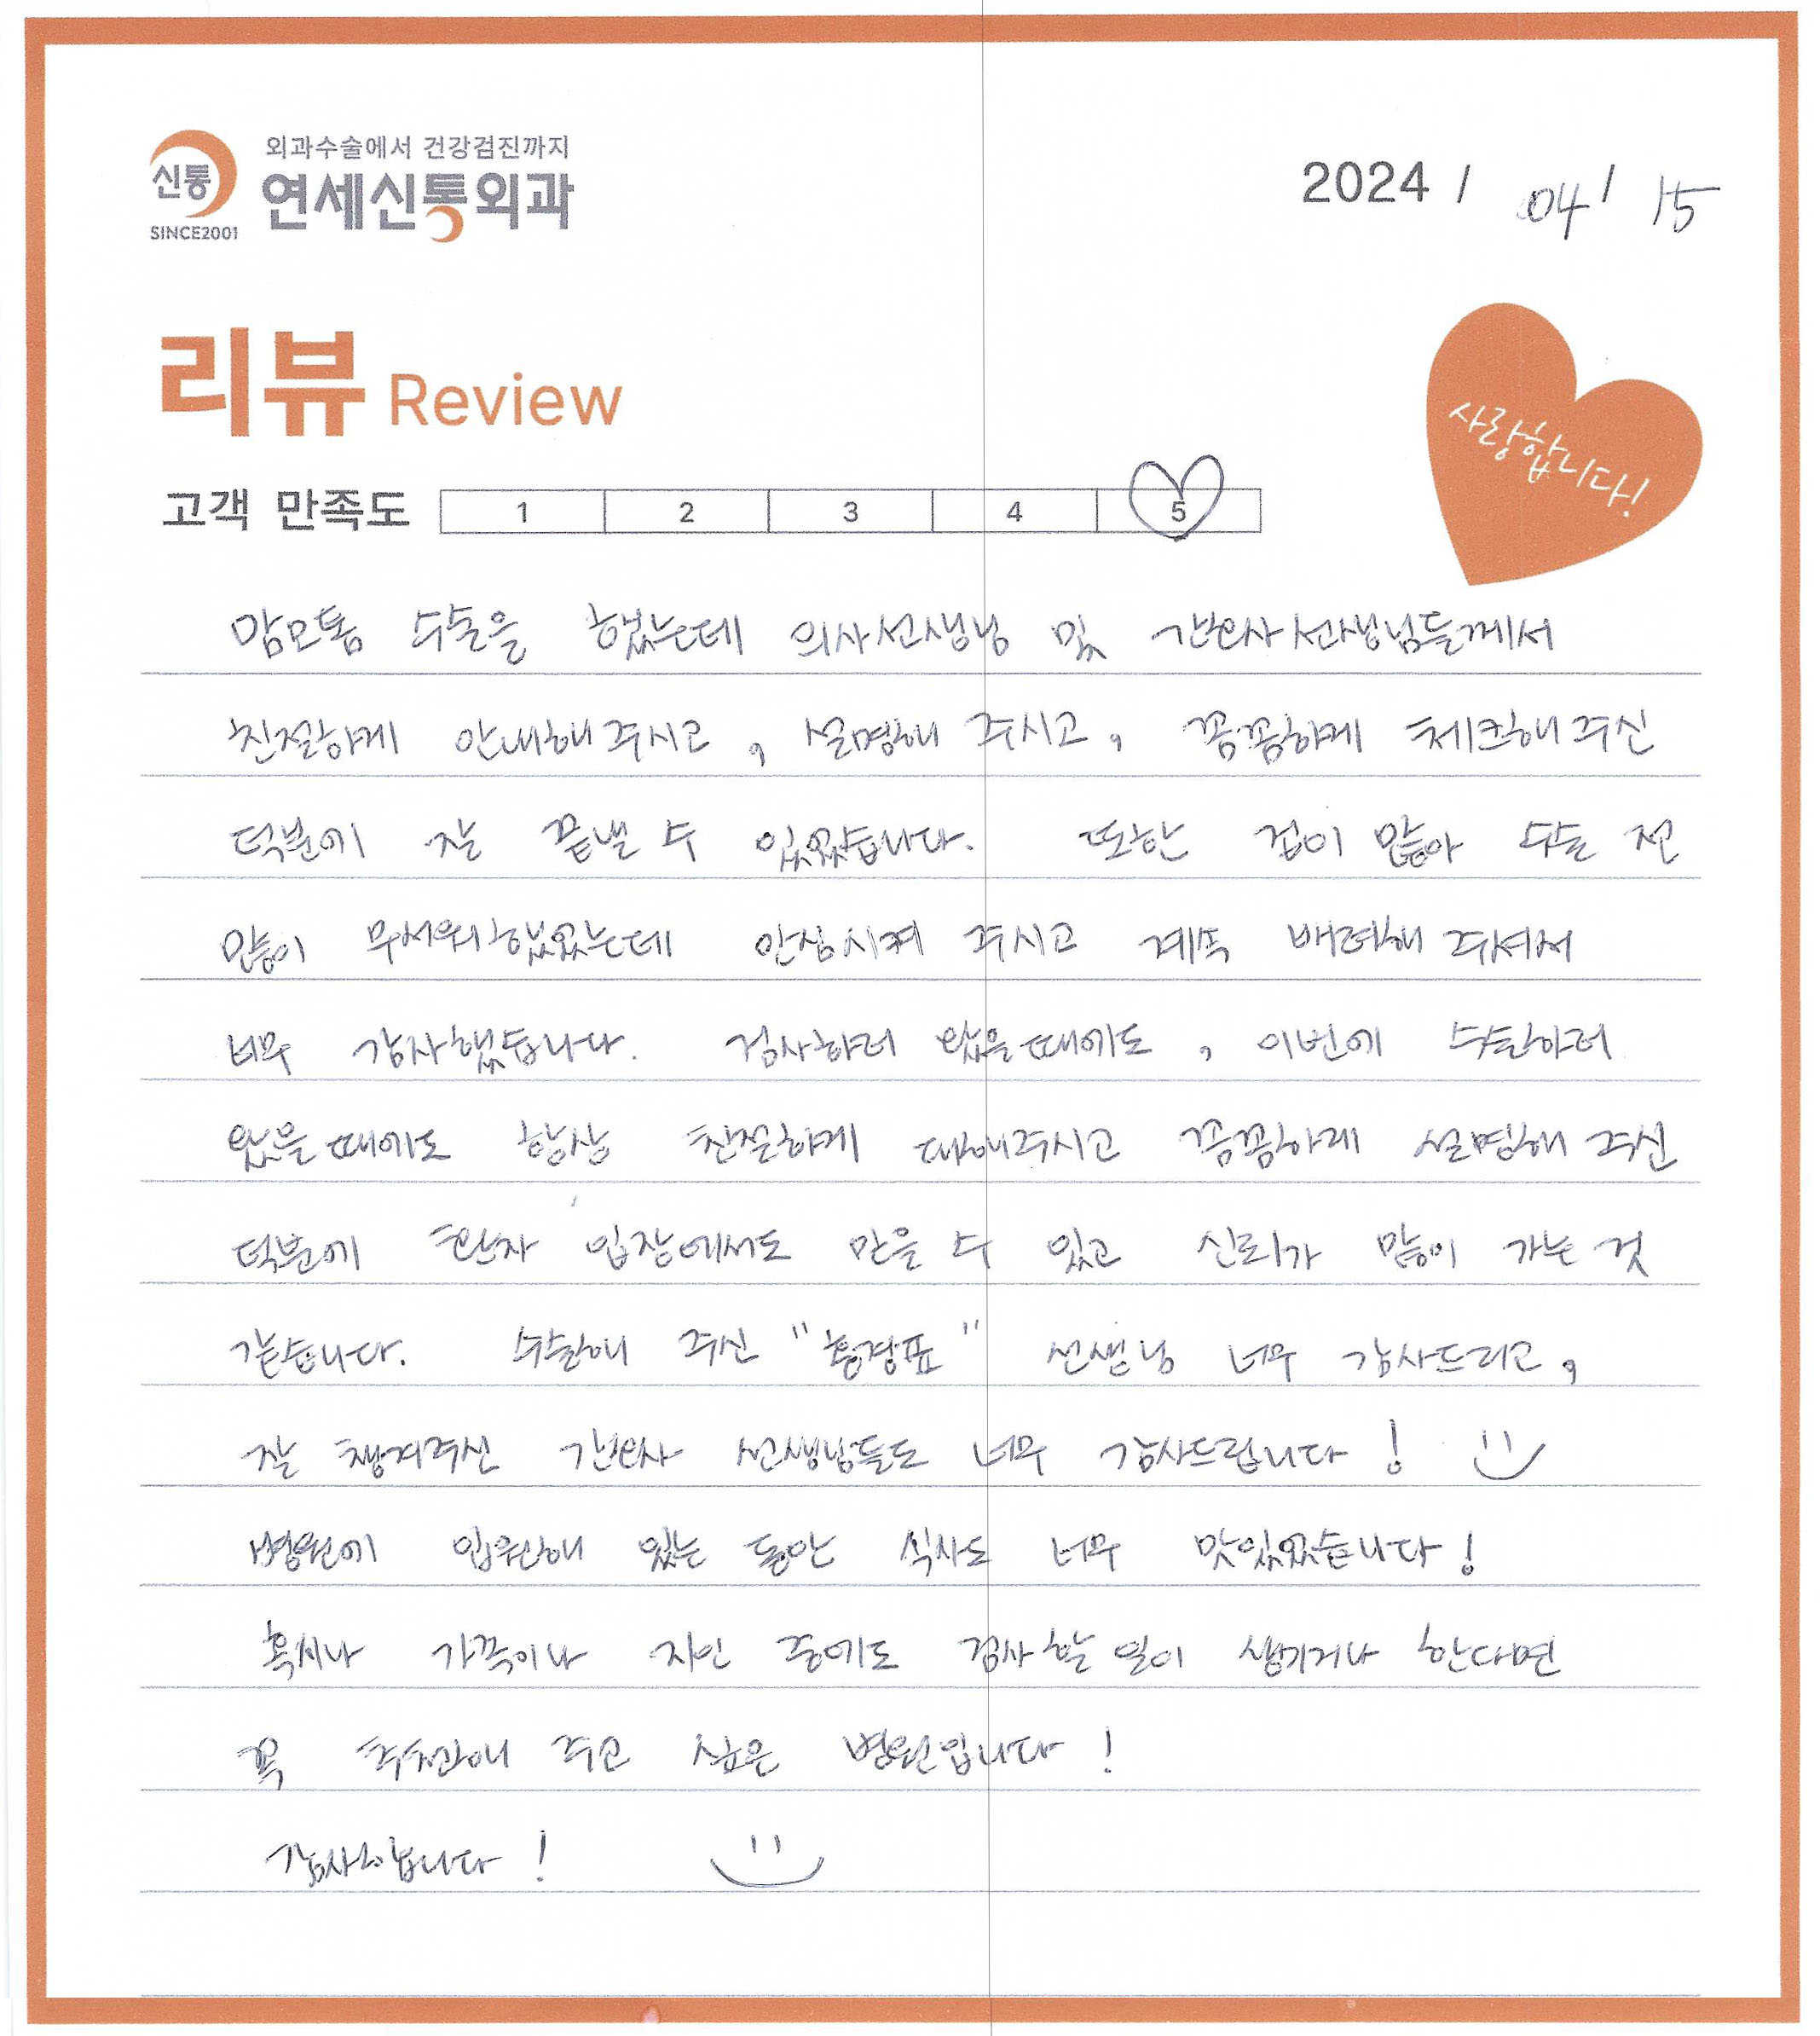 외과수술에서 건강검진까지
신통 연세신통외과
SINCE2001
2024 / 04 / 15
리뷰 Review
사랑합니다!
고객 만족도 1 2 3 4 5
맘모톰 수술을 했는데 의사선생님 및 간호사선생님들께서
친절하게 안내해 주시고, 설명해 주시고, 꼼꼼하게 체크해 주신
덕분에 잘 끝낼 수 있었습니다. 또한 겁이 많아 수술 전
많이 무서워했었는데 안심시켜 주시고 계속 배려해 주셔서
너무 감사했습니다. 검사하러 왔을때에도, 이번에 수술하러
왔을때에도 항상 친절하게 대해주시고 꼼꼼하게 설명해 주신
덕분에 환자 입장에서도 믿을 수 있고 신뢰가 많이 가는 것
같습니다. 수술해 주신 "홍경표" 선생님 너무 감사드리고,
잘 챙겨주신 간호사 선생님들도 너무 감사드립니다!
병원에 입원해 있는 동안 식사도 너무 맛있었습니다!
혹시나 가족이나 지인 중에도 검사할 일이 생기거나 한다면
꼭 추천해 주고 싶은 병원입니다!
감사합니다!